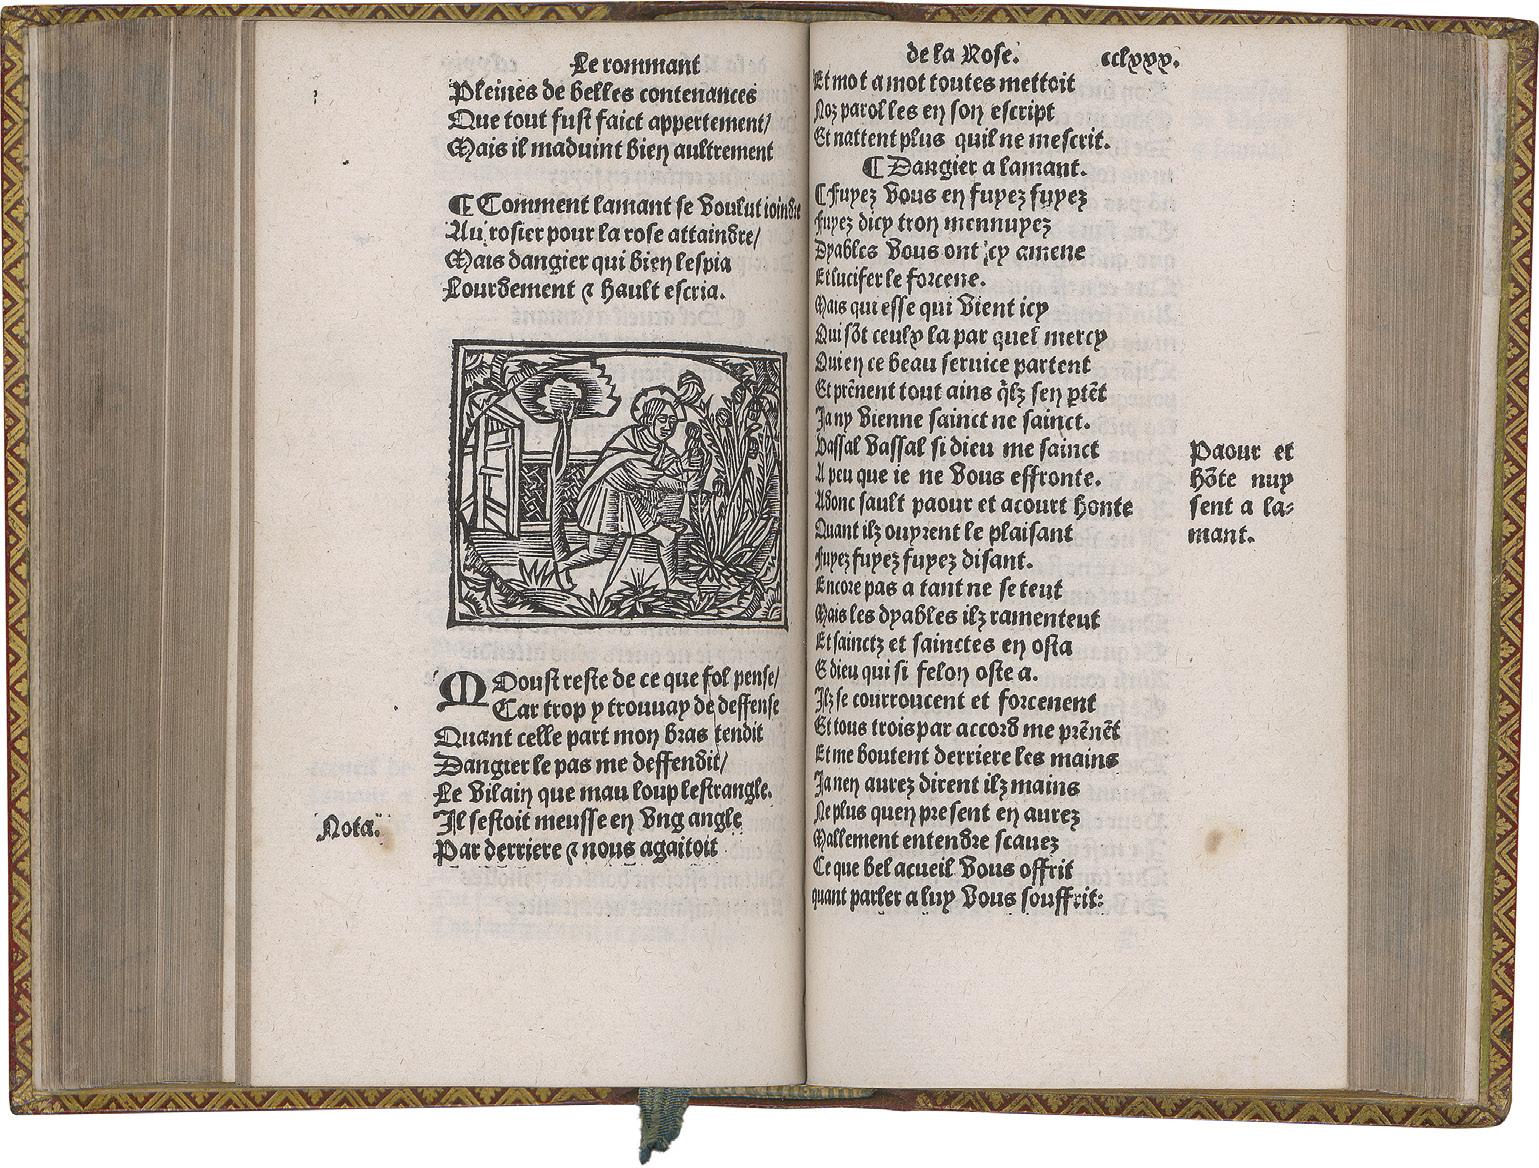 Le rommant
Pleines de belles contenances
Que tout fust faict appertement/
Mais il maduint bien aultrement
¶ Comment lamant se voulut ioindre
Au rosier pour la rose attaindre/
Mais dangier qui bien lespia
Lourdement ⁊ hault escria.
Moust reste de ce que fol pense/
Car trop y trouuay de deffense
Quant celle part mon bras tendit
Dangier le pas me deffendit/
Le vilain que mau loup lestrangle.
Il sestoit meusse en vng angle
Nota.
Par derriere ⁊ nous agaitoit
de la Rose. cclxxx.
Et mot a mot toutes mettoit
Noz parolles en son escript
Et nattent plus quil ne mescrit.
¶ Dangier a lamant.
¶ fuyez vous en fuyez fuyez
fuyez dicy trop mennuyez
Dyables vous ont icy amene
Et lucifer le forcene.
Mais qui esse qui vient icy
Qui sõt ceulx la par quel mercy
Qui en ce beau seruice partent
Et prẽnent tout ains q̃lz sen ptẽt
Ja ny vienne sainct ne sainct.
Vassal vassal si dieu me sainct
A peu que ie ne vous effronte.
Adonc sault paour et acourt honte
Quant ilz ouyrent le plaisant
fuyez fuyez fuyez disant.
Encore pas a tant ne se teut
Mais les dyables ilz ramenteut
Et sainctz et sainctes en osta
E dieu qui si felon oste a.
Ilz se courroucent et forcenent
Et tous trois par accord me prẽnẽt
Et me boutent derriere les mains
Ja nen aurez dirent ilz mains
Ne plus quen present en aurez
Mallement entendre scauez
Ce que bel acueil vous offrit
quant parler a luy vous souffrit:
Paour et
hõte nuy
sent a la-
mant.